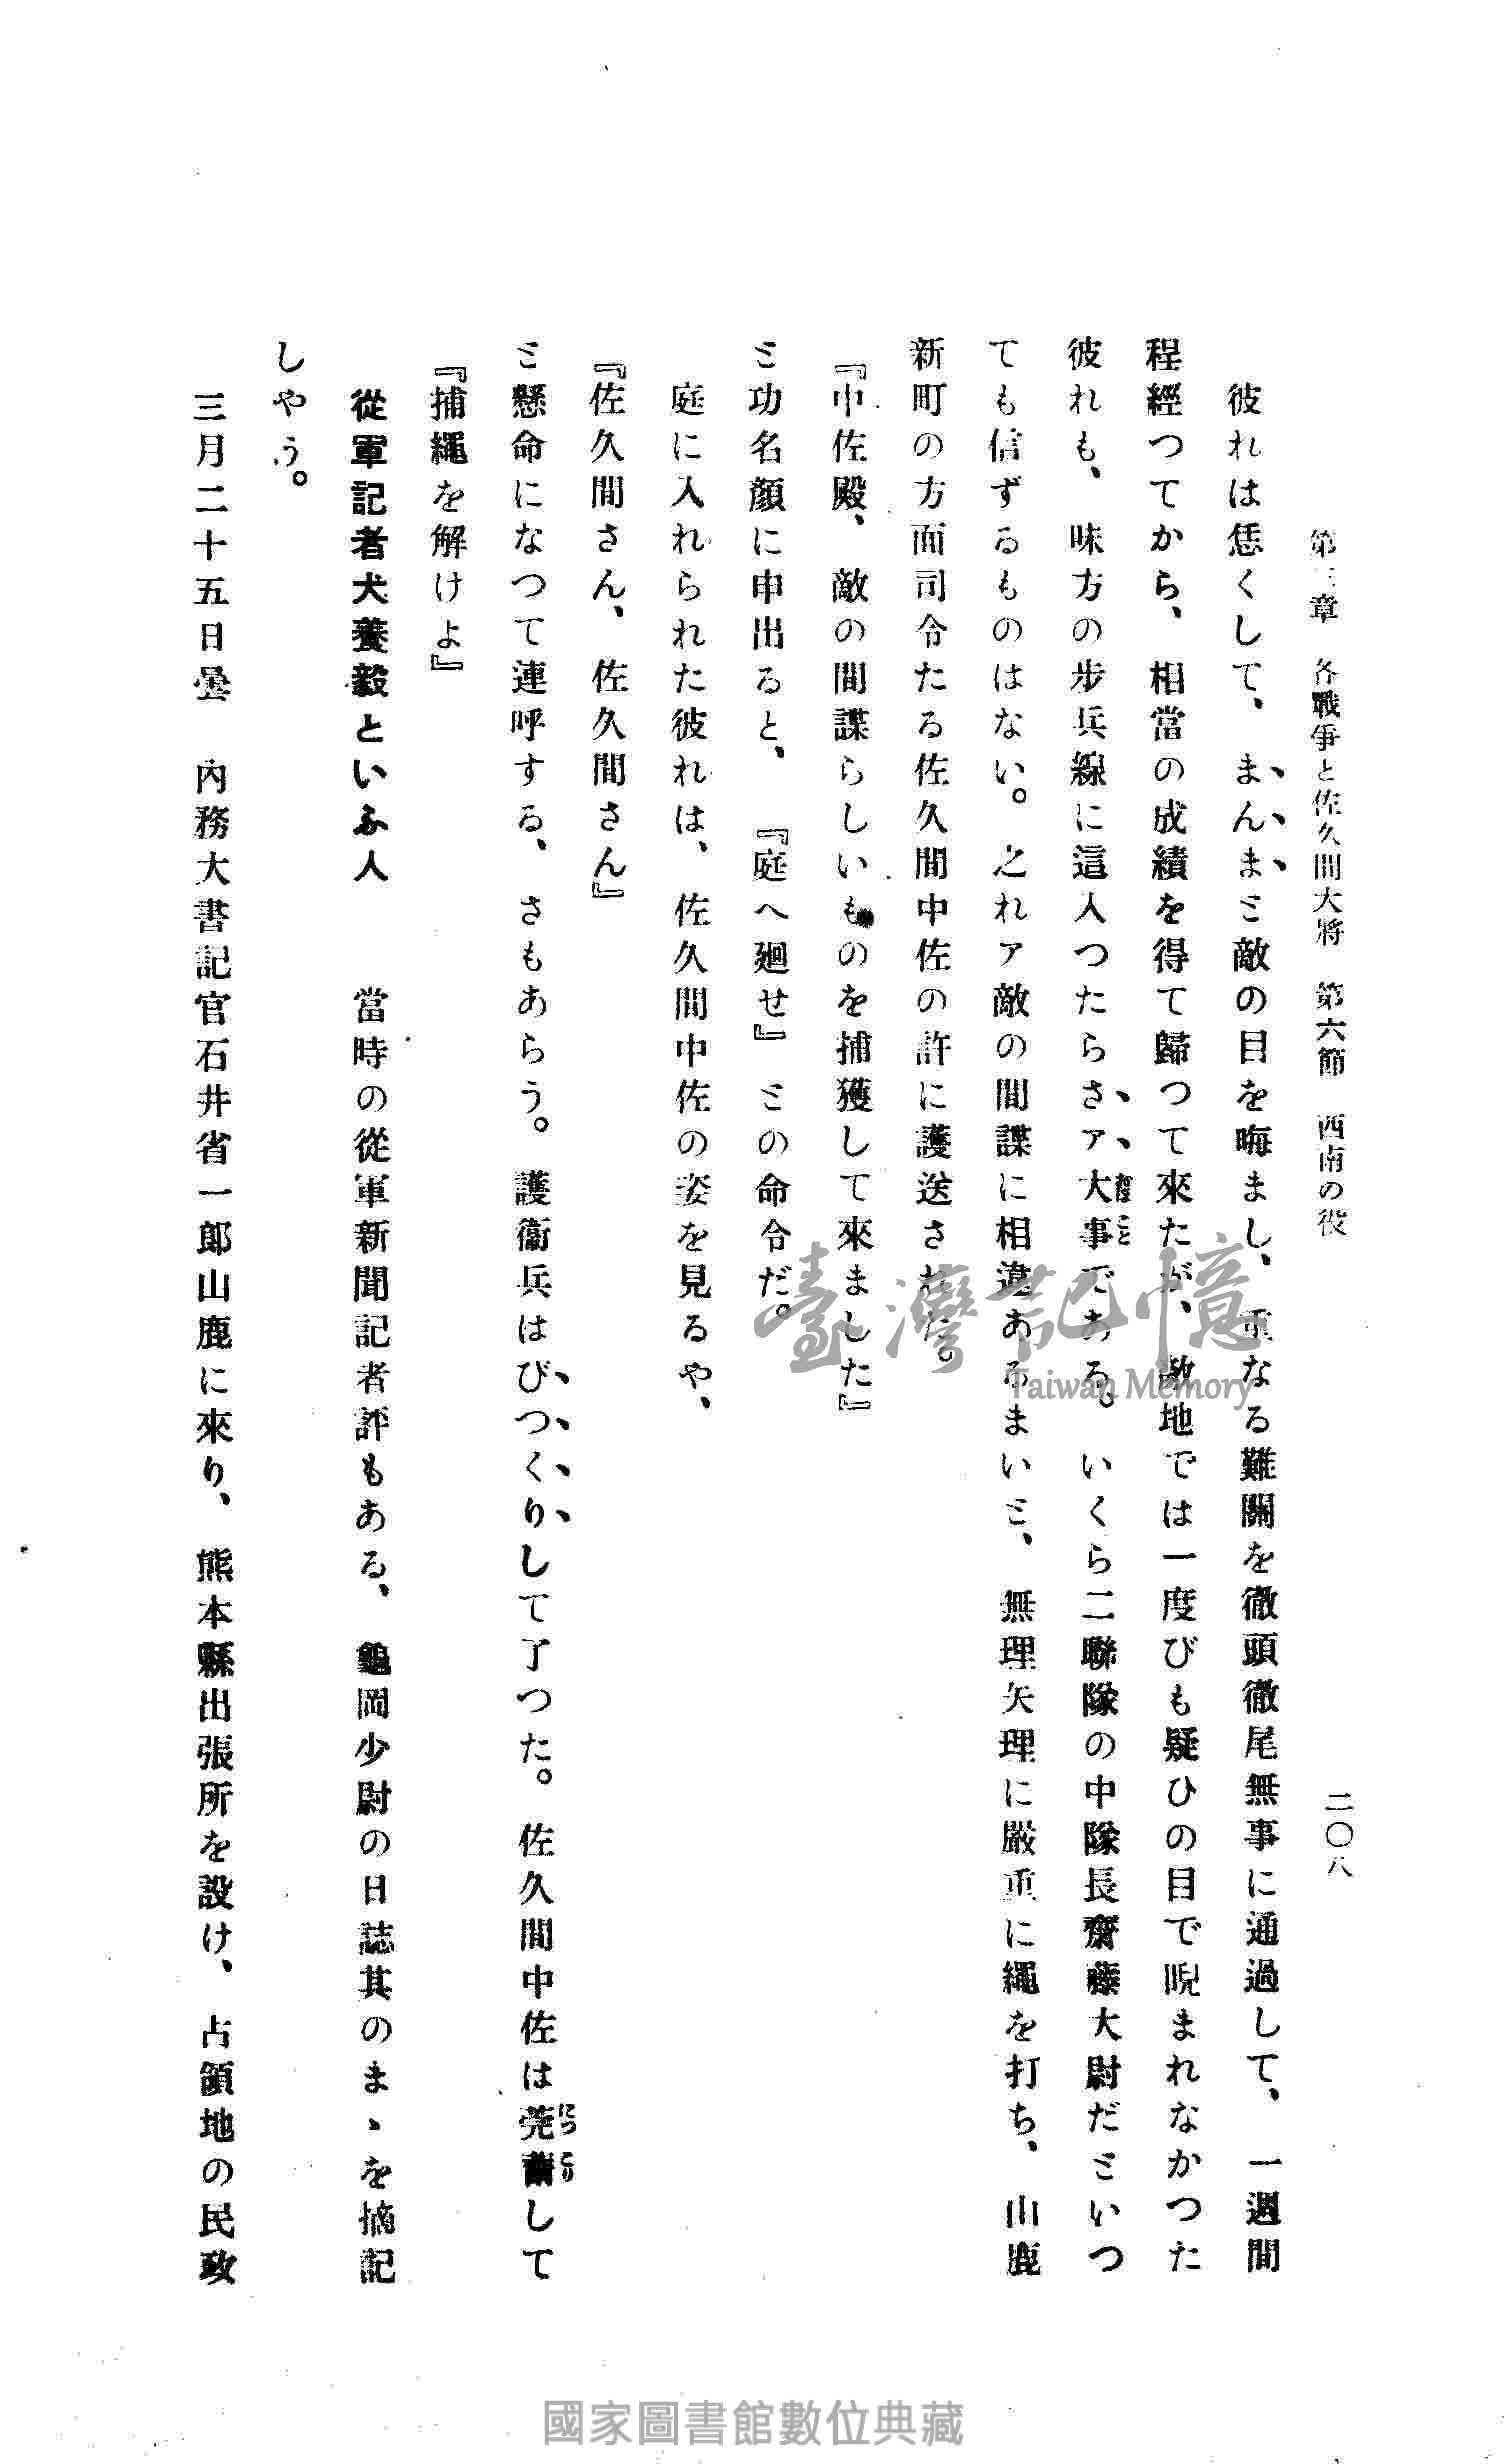 第三章　各戰爭と佐久間大將　第六節　西南の役
二〇八
彼れは恁くして、まんまミ敵の目を晦まし、重なる難關を徹頭徹尾無事に通過して、一週間
程經つてから、相當の成績を得て歸つて來たが、敵地では一度びも疑ひの目で睨まれなかつた
彼れも、味方の步兵線に這入つたらさァ大事である。いくら二聯隊の中隊長齋藤大尉だミいつ
ても信ずるものはない。之れァ敵の間諜に相違あるまいミ、無理矢理に嚴重に繩を打ち、山鹿
新町の方面司令たる佐久間中佐の許に護送された。
『中佐殿、敵の間諜らしいものを捕獲して來ました』
ミ功名顏に申出ると、『庭へ廻せ』ミの命令だ。
庭に入れられた彼れは、佐久間中佐の姿を見るや、
『佐久間さん、佐久間さん』
ミ懸命になつて連呼する、さもあらう。護衞兵はびつくりして了つた。佐久間中佐は莞爾して
『捕繩を解けよ』
從軍記者犬養毅といふ人　當時の從軍新聞記者評もある、龜岡少尉の日誌其のまゝを摘記
しやう。
三月二十五日曇　內務大書記官石井省一郎山鹿に來り、熊本縣出張所を設け、占領地の民政
臺灣記憶
Taiwan Memory
國家圖書館數位典藏